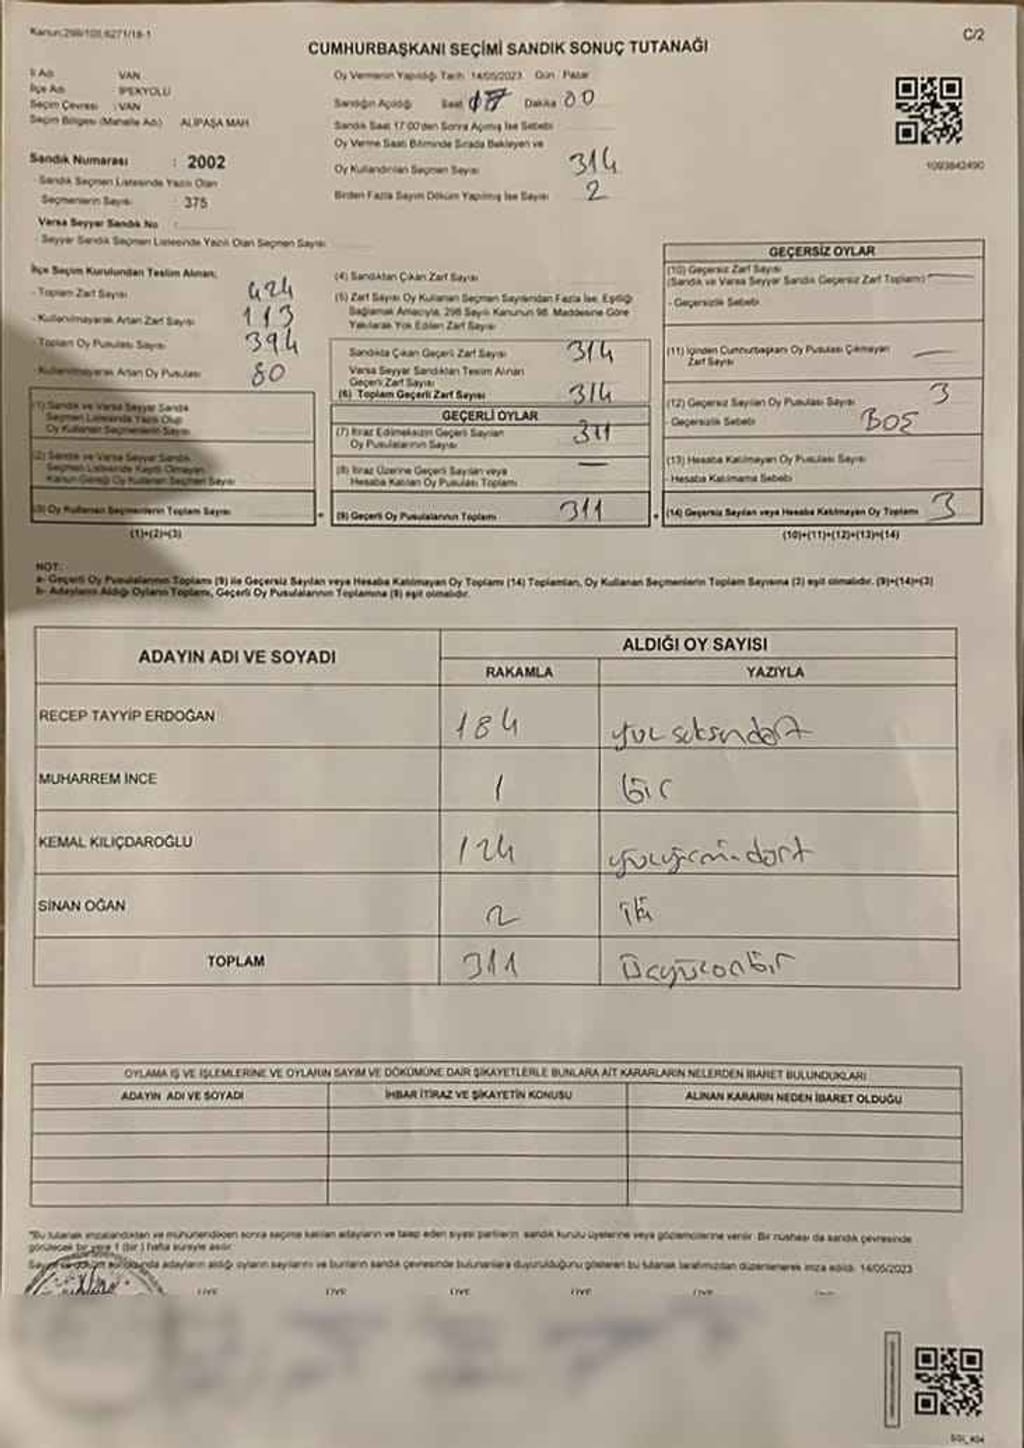 Kanun:298/100,6271/18-1
C/2
CUMHURBAŞKANI SEÇİMİ SANDIK SONUÇ TUTANAĞI
İl Adı : VAN
İlçe Adı : İPEKYOLU
Seçim Çevresi : VAN
Seçim Bölgesi (Mahalle Adı) ALİPAŞA MAH
Sandık Numarası : 2002
- Sandık Seçmen Listesinde Yazılı Olan
Seçmenlerin Sayısı : 375
Varsa Seyyar Sandık No :
- Seyyar Sandık Seçmen Listesinde Yazılı Olan Seçmen Sayısı
Oy Vermenin Yapıldığı Tarih 14/05/2023 Gün Pazar
Sandığın Açıldığı Saat 17 Dakika 00
Sandık Saat 17:00'den Sonra Açılmış İse Sebebi
Oy Verme Saati Bitiminde Sırada Bekleyen ve
Oy Kullandırılan Seçmen Sayısı 314
Birden Fazla Sayım Döküm Yapılmış İse Sayısı 2
1093842490
İlçe Seçim Kurulundan Teslim Alınan;
- Toplam Zarf Sayısı 424
- Kullanılmayarak Artan Zarf Sayısı 113
- Toplam Oy Pusulası Sayısı 394
- Kullanılmayarak Artan Oy Pusulası 80
(1) Sandık ve Varsa Seyyar Sandık
Seçmen Listesinde Yazılı Olup
Oy Kullanan Seçmenlerin Sayısı
(2) Sandık ve Varsa Seyyar Sandık
Seçmen Listesinde Kayıtlı Olmayan
Kanun Gereği Oy Kullanan Seçmen Sayısı
(3) Oy Kullanan Seçmenlerin Toplam Sayısı
(1)+(2)=(3)
(4) Sandıktan Çıkan Zarf Sayısı
(5) Zarf Sayısı Oy Kullanan Seçmen Sayısından Fazla İse, Eşitliği
Sağlamak Amacıyla, 298 Sayılı Kanunun 98. Maddesine Göre
Yakılarak Yok Edilen Zarf Sayısı
Sandıkta Çıkan Geçerli Zarf Sayısı 314
Varsa Seyyar Sandıktan Teslim Alınan
Geçerli Zarf Sayısı
(6) Toplam Geçerli Zarf Sayısı 314
GEÇERLİ OYLAR
(7) İtiraz Edilmeksizin Geçerli Sayılan
Oy Pusulalarının Sayısı 311
(8) İtiraz Üzerine Geçerli Sayılan veya
Hesaba Katılan Oy Pusulası Toplamı —
(9) Geçerli Oy Pusulalarının Toplamı 311
GEÇERSİZ OYLAR
(10) Geçersiz Zarf Sayısı
(Sandık ve Varsa Seyyar Sandık Geçersiz Zarf Toplamı) —
- Geçersizlik Sebebi
(11) İçinden Cumhurbaşkanı Oy Pusulası Çıkmayan
Zarf Sayısı —
(12) Geçersiz Sayılan Oy Pusulası Sayısı 3
- Geçersizlik Sebebi BOŞ
(13) Hesaba Katılmayan Oy Pusulası Sayısı
- Hesaba Katılmama Sebebi
(14) Geçersiz Sayılan veya Hesaba Katılmayan Oy Toplamı 3
(10)+(11)+(12)+(13)=(14)
NOT:
a- Geçerli Oy Pusulalarının Toplamı (9) ile Geçersiz Sayılan veya Hesaba Katılmayan Oy Toplamı (14) Toplamları, Oy Kullanan Seçmenlerin Toplam Sayısına (3) eşit olmalıdır. (9)+(14)=(3)
b- Adayların Aldığı Oyların Toplamı, Geçerli Oy Pusulalarının Toplamına (9) eşit olmalıdır.
ADAYIN ADI VE SOYADI ALDIĞI OY SAYISI
RAKAMLA YAZIYLA
RECEP TAYYİP ERDOĞAN 184 yüz seksendört
MUHARREM İNCE 1 bir
KEMAL KILIÇDAROĞLU 124 yüzyirmi dört
SİNAN OĞAN 2 iki
TOPLAM 311 Üçyüzonbir
OYLAMA İŞ VE İŞLEMLERİNE VE OYLARIN SAYIM VE DÖKÜMÜNE DAİR ŞİKAYETLERLE BUNLARA AİT KARARLARIN NELERDEN İBARET BULUNDUKLARI
ADAYIN ADI VE SOYADI İHBAR İTİRAZ VE ŞİKAYETİN KONUSU ALINAN KARARIN NEDEN İBARET OLDUĞU
"Bu tutanak imzalandıktan ve mühürlendikten sonra seçime katılan adayların ve talep eden siyasi partilerin sandık kurulu üyelerine veya gözlemcilerine verilir. Bir nüshası da sandık çevresinde
görülecek bir yere 1 (bir) hafta süreyle asılır.
adayların aldığı oyların sayılarını ve bunların sandık çevresinde bulunanlara duyurulduğunu gösteren bu tutanak tarafımızdan düzenlenerek imza edildi. 14/05/2023
ÜYE ÜYE ÜYE ÜYE ÜYE